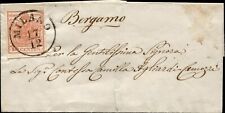 Bergamo
MILANO
17
12
Per la Gentilissima Signora
La Sig. Contessa Camilla Agliardi